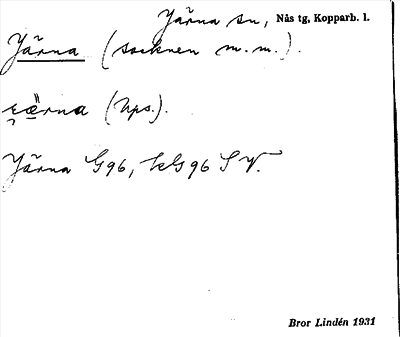 Järna sn, Nås tg, Kopparb. l.
Järna (socknen m. m.).
(Ups.).
Järna G96, kG96 SV.
Bror Lindén 1931